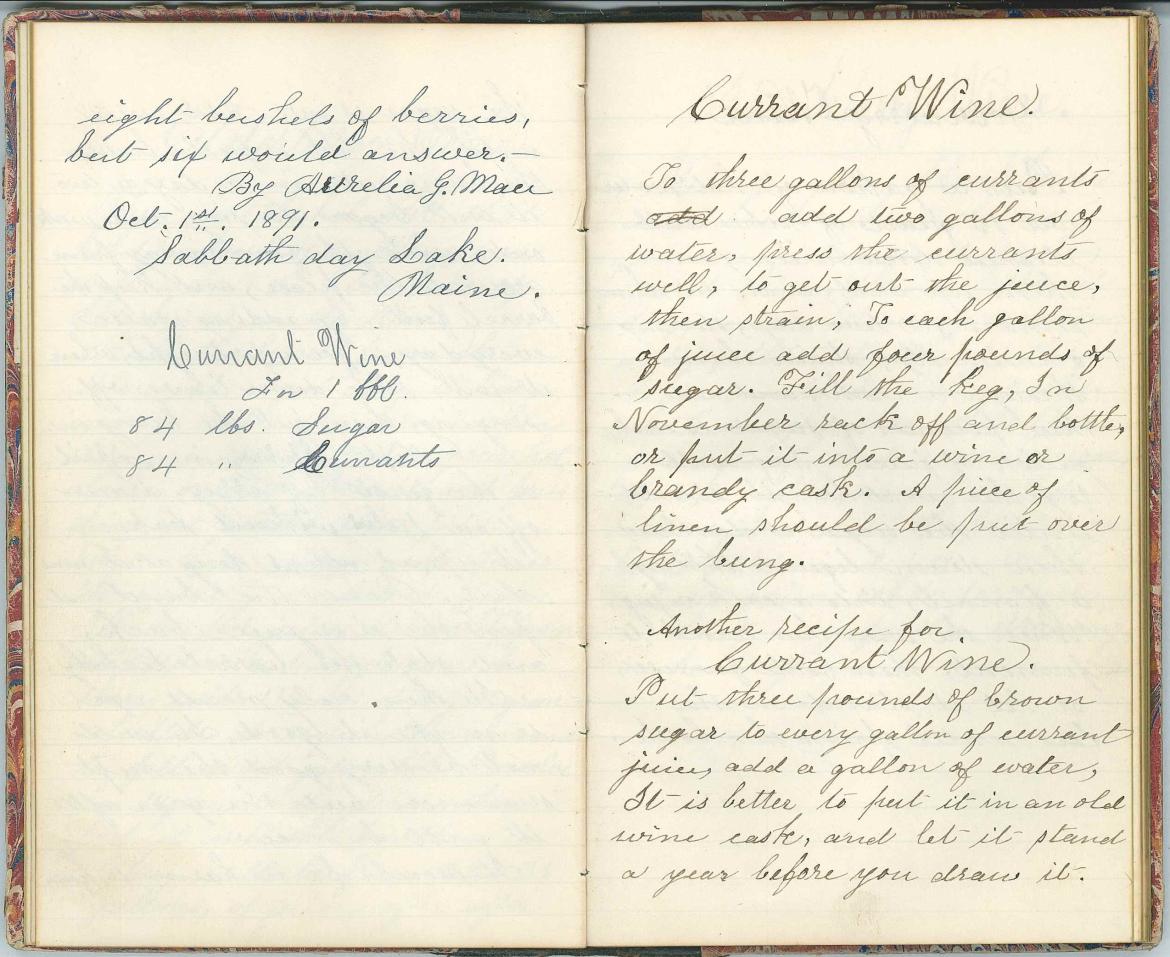 eight bushels of berries,
but six would answer.—
By Aurelia G. Mace
Oct. 1st. 1891.
Sabbath day Lake.
Maine.
Currant Wine
For 1 bbl.
84 lbs. Sugar
84 " Currants
Currant Wine.
To three gallons of currants
add add two gallons of
water, press the currants
well, to get out the juice,
then strain, To each gallon
of juice add four pounds of
sugar. Fill the keg, In
November rack off and bottle,
or put it into a wine or
brandy cask. A piece of
linen should be put over
the bung.
Another recipe for
Currant Wine.
Put three pounds of brown
sugar to every gallon of currant
juice, add a gallon of water,
It is better to put it in an old
wine cask, and let it stand
a year before you draw it.